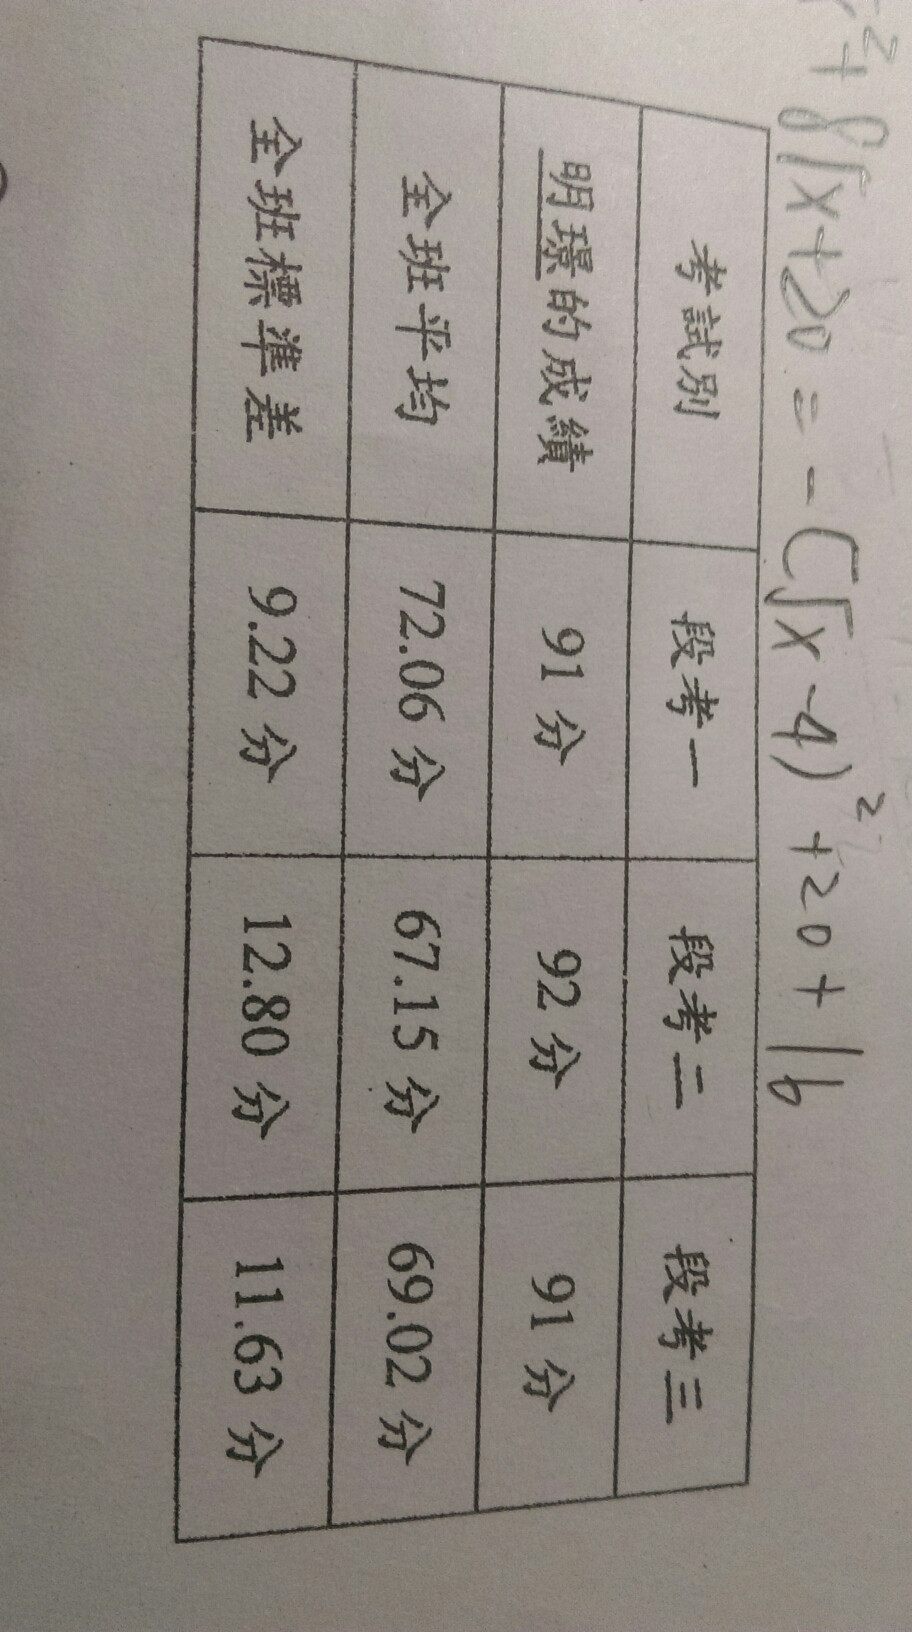 +8√x+20 = -(√x-4)²+20+16
考試別 段考一 段考二 段考三
明璟的成績 91分 92分 91分
全班平均 72.06分 67.15分 69.02分
全班標準差 9.22分 12.80分 11.63分